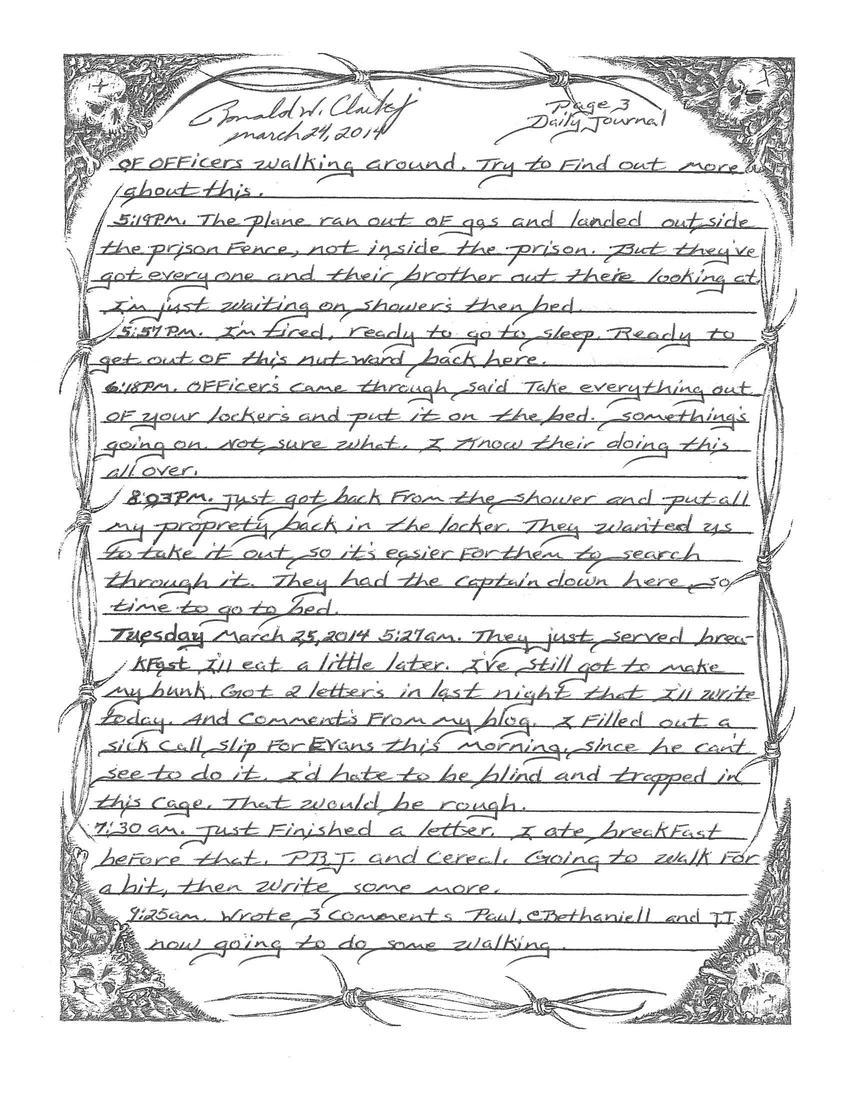 Ronald W. Clark Jr
March 24, 2014
Page 3
Daily Journal
OF OFFicers walking around. Try to Find out more
about this.
5:19PM. The plane ran out OF gas and landed outside
the prison Fence, not inside the prison. But they've
got everyone and their brother out there looking at.
I'm just waiting on shower's then bed.
5:57PM. I'm tired, ready to go to sleep. Ready to
get out OF this nut ward back here.
6:18PM. OFFicer's came through said Take everything out
OF your locker's and put it on the bed. something's
going on. Not sure what. I Know their doing this
all over.
8:03PM. Just got back From the shower and put all
my proprety back in the locker. They wanted us
to take it out, so it's easier For them to search
through it. They had the captain down here, so
time to go to bed.
Tuesday March 25, 2014 5:27am. They just served brea-
kFast I'll eat a little later. I've still got to make
my bunk. Got 2 letter's in last night that I'll write
today. And Comment's From my blog. I Filled out a
sick call slip For Evans this morning, since he can't
see to do it. I'd hate to be blind and trapped in
this cage. That would be rough.
7:30 am. Just Finished a letter. I ate breakFast
beFore that. PBJ. and Cereal. Going to walk For
a bit, then write some more.
9:25am. Wrote 3 Comments Paul, CBethaniell and JJ.
now going to do some walking.